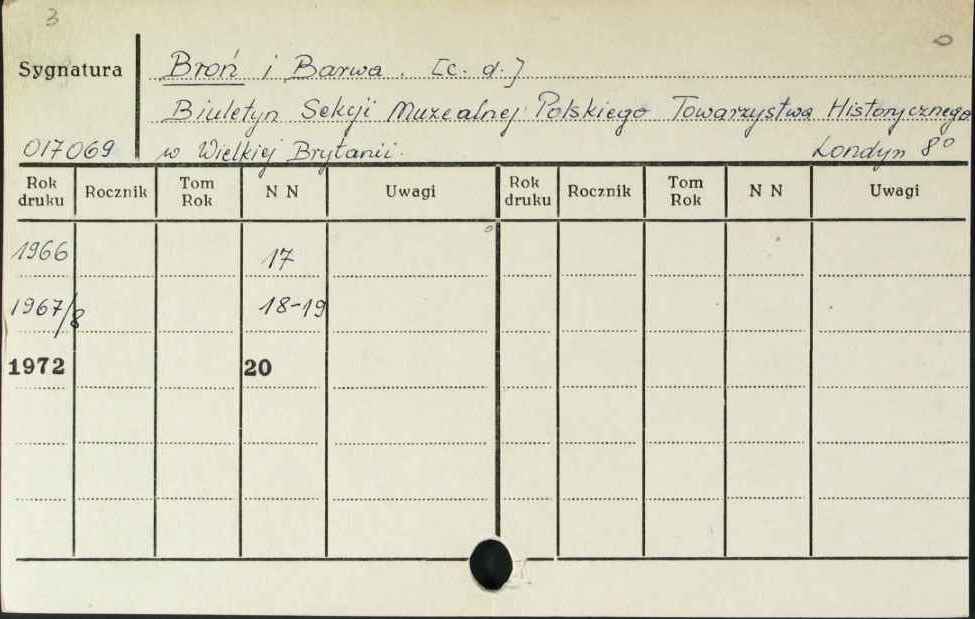 3
Sygnatura
Broń i Barwa. [c. d.]
Biuletyn Sekcji Muzealnej Polskiego Towarzystwa Historycznego
017069 w Wielkiej Brytanii. Londyn 8°
Rok druku Rocznik Tom Rok N N Uwagi Rok druku Rocznik Tom Rok N N Uwagi
1966 17
1967/8 18-19
1972 20